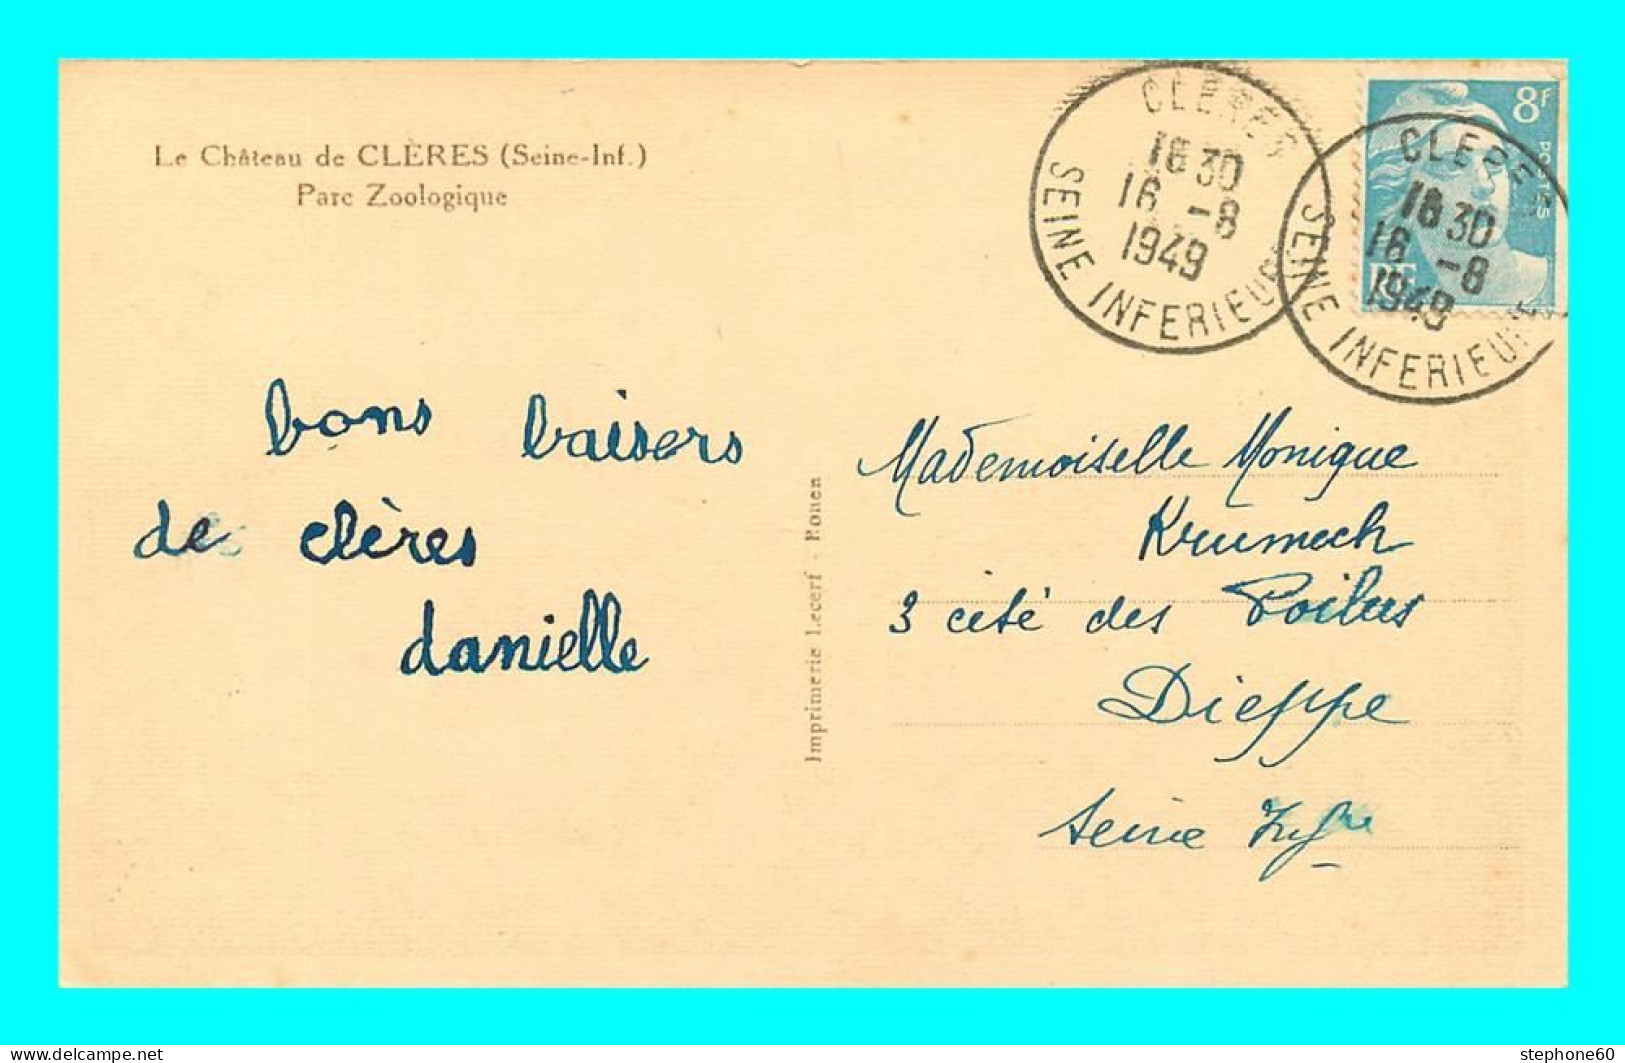 Le Château de CLÈRES (Seine-Inf.)
Parc Zoologique
CLERES
16 30
16 -8
1949
SEINE INFERIEURE
8f
POSTES
RF
CLERES
16 30
16 -8
1949
SEINE INFERIEURE
bons baisers
de clères
danielle
Imprimerie Lecerf - Rouen
Mademoiselle Monique
Krumech
3 cité des Poilus
Dieppe
Seine Infre
www.delcampe.net
stephone60